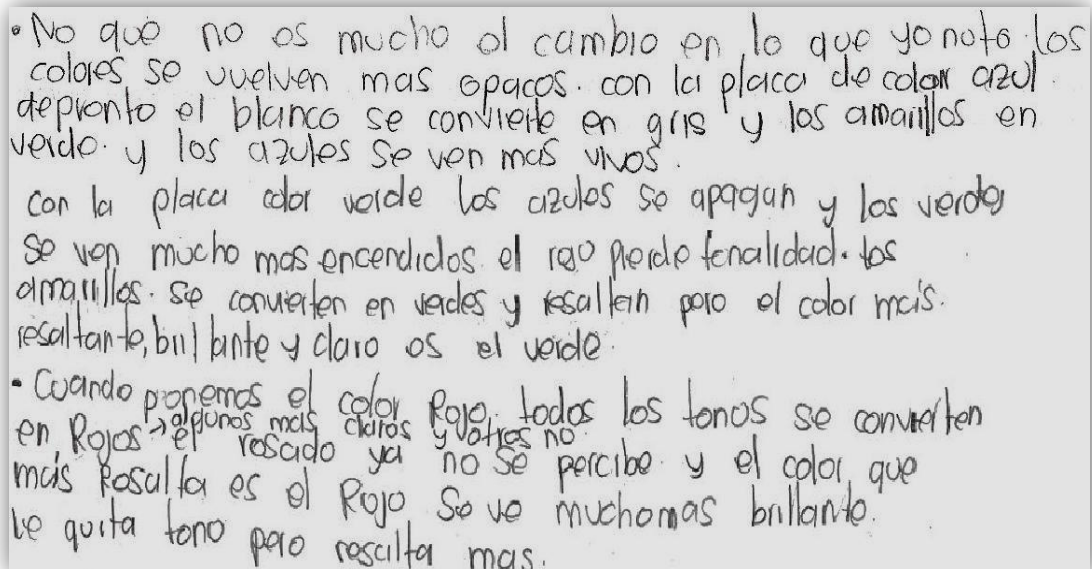 • No que no es mucho el cambio en lo que yo noto. los
colores se vuelven mas opacos. con la placa de color azul
depronto el blanco se convierte en gris y los amarillos en
verde. y los azules se ven mas vivos.
con la placa color verde los azules se apagan y los verdes
se ven mucho mas encendidos. el rojo pierde tonalidad. los
amarillos. se convierten en verdes y resaltan pero el color más.
resaltante, brillante y claro es el verde.
• Cuando ponemos el color Rojo. todos los tonos se convierten
en Rojos → algunos mas claros y otros no.
el rosado ya no se percibe. y el color, que
más Resalta es el Rojo Se ve muchomas brillante.
le quita tono pero resalta mas.